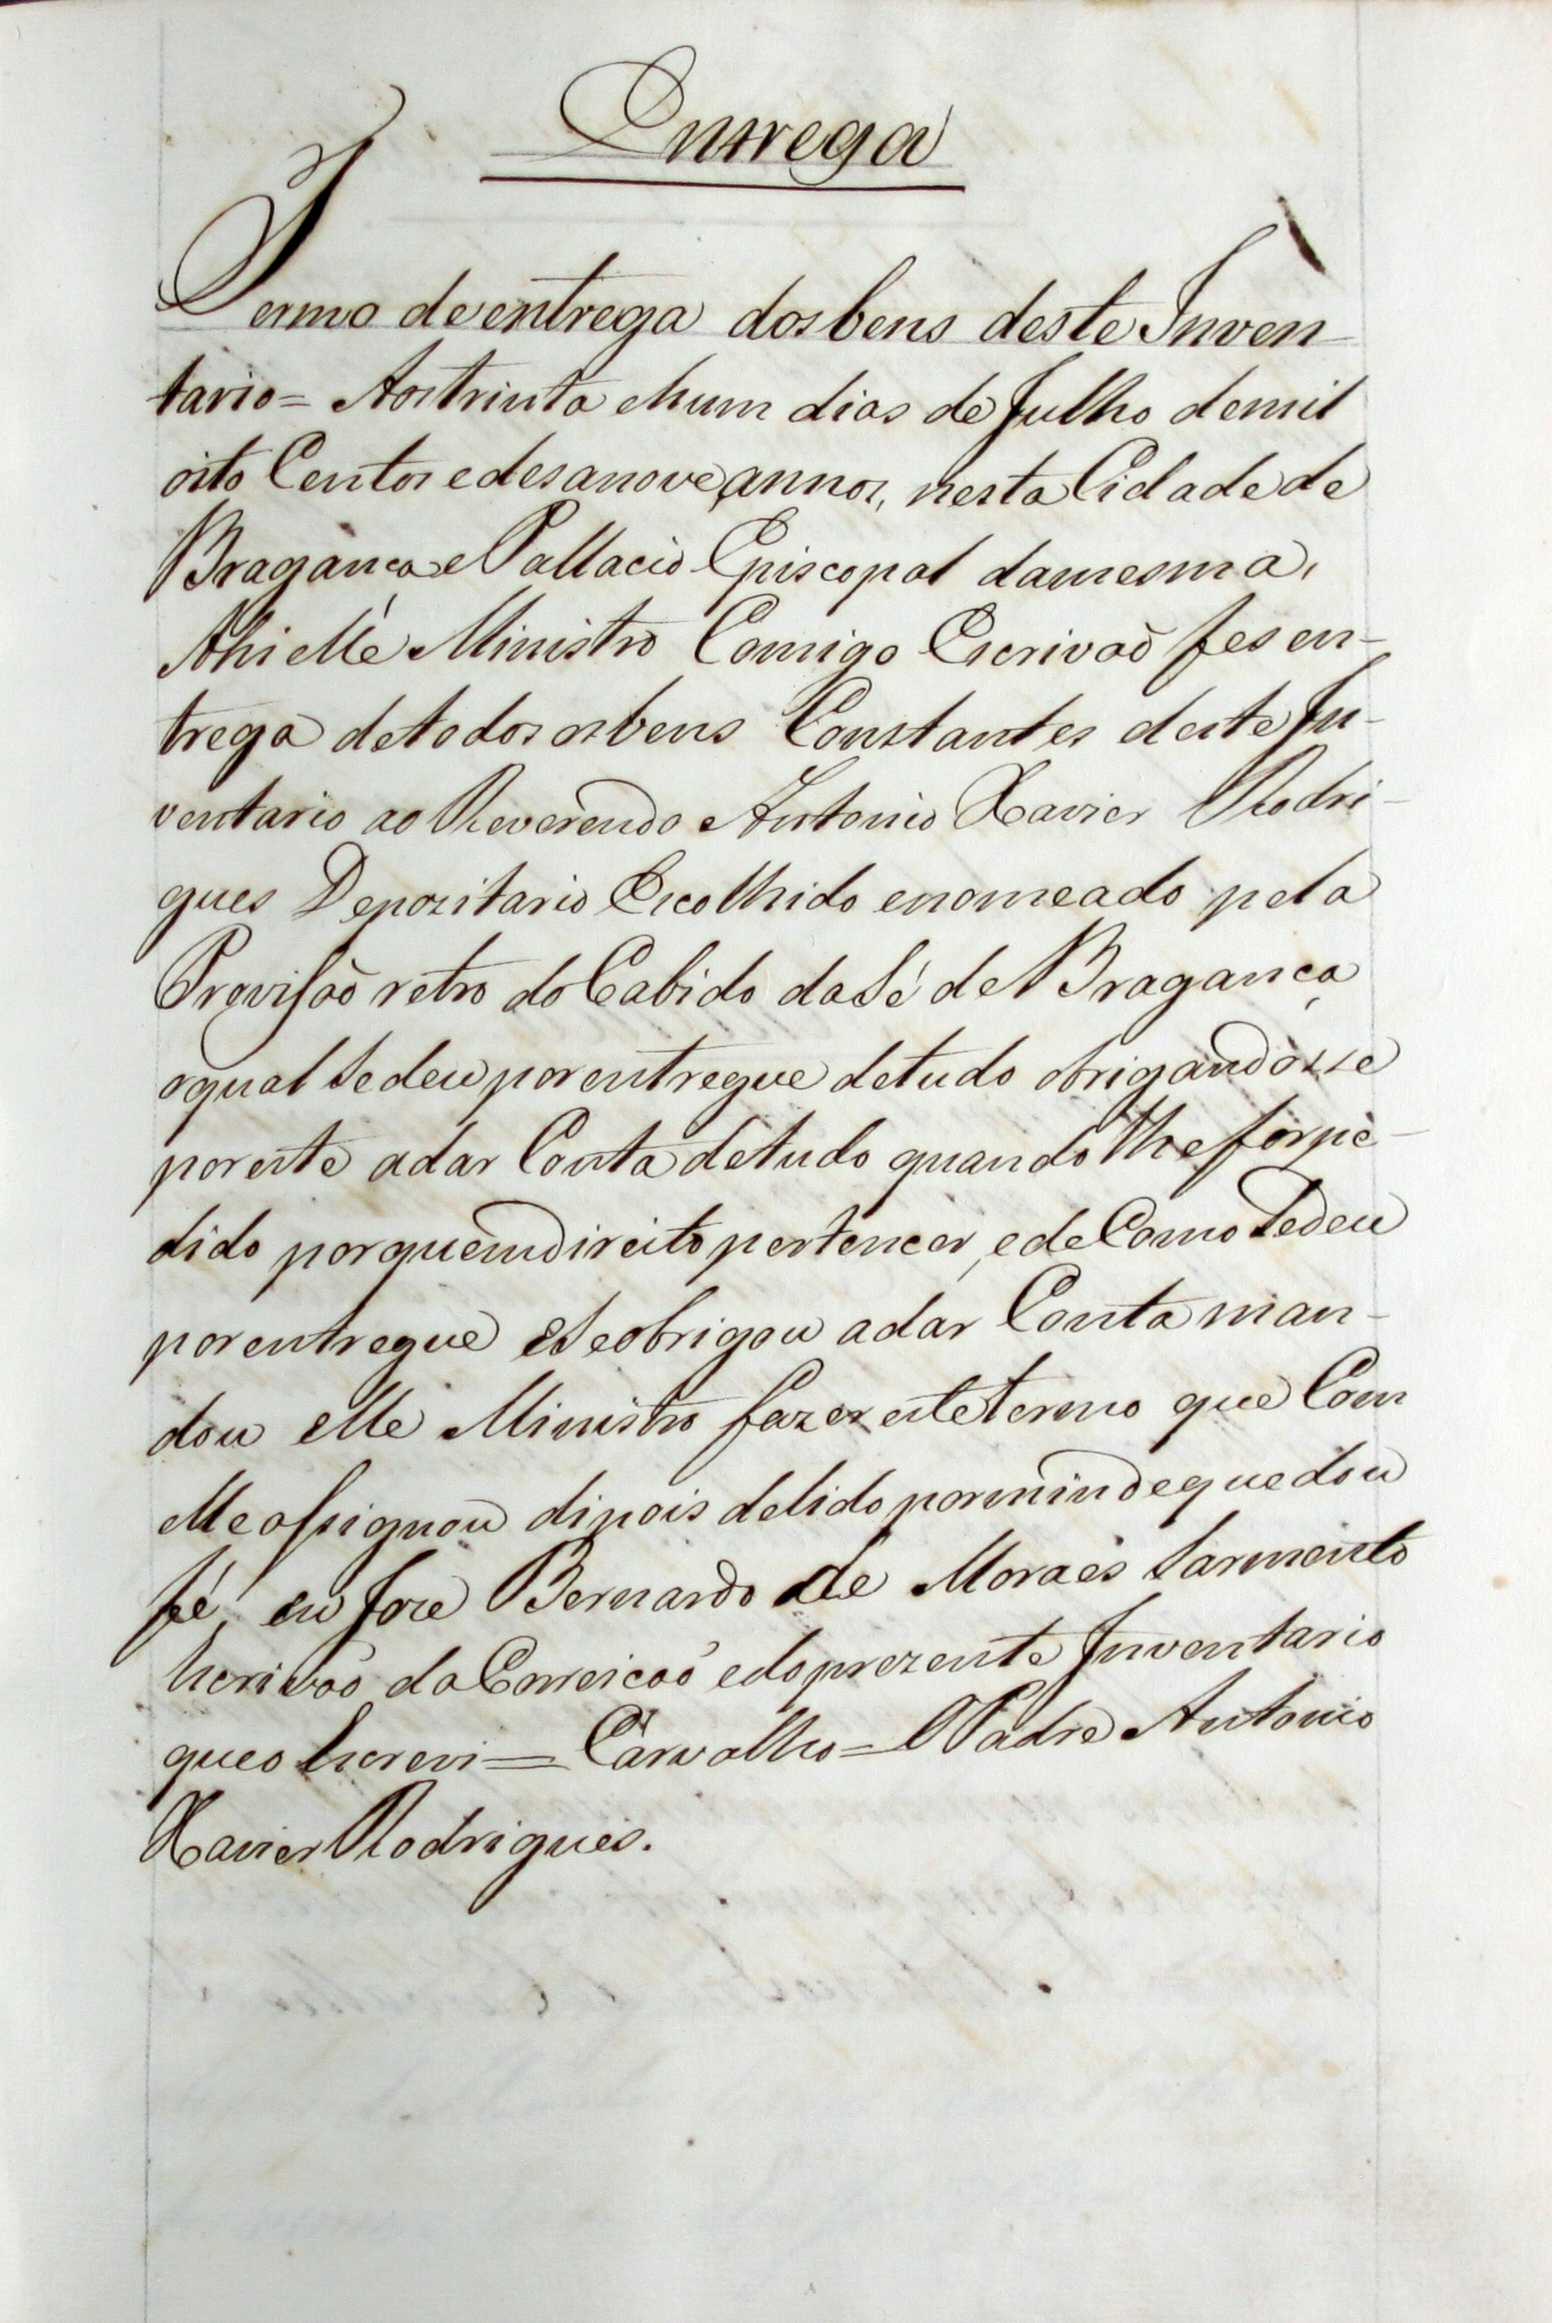 Entrega
Termo de entrega dos bens deste Inven-
tario = Aos trinta e hum dias de Julho de mil
oito Centos e desanove annos, nesta Cidade de
Bragança e Pallacio Episcopal da mesma,
Ahi elle Ministro Comigo Escrivaõ fes en-
trega de todos os bens Constantes deste In-
ventario ao Reverendo Antonio Xavier Rodri-
gues Depozitario Escolhido e nomeado pela
Provisaõ retro do Cabido da Sé de Bragança
o qual se deu por entregue de tudo obrigandosse
por este a dar Conta de tudo quando lhe for pe-
dido por quem direito pertencer, e de Como Se deu
por entregue e Se obrigou a dar Conta man-
dou elle Ministro fazer este termo que Com
elle assignou dipois de lido por mim de que dou
fé, eu Joze Bernardo de Moraes Sarmento
Escrivaõ da Correicaõ e do prezente Inventario
que o Escrevi = Carvalho = O Padre Antonio
Xavier Rodrigues.